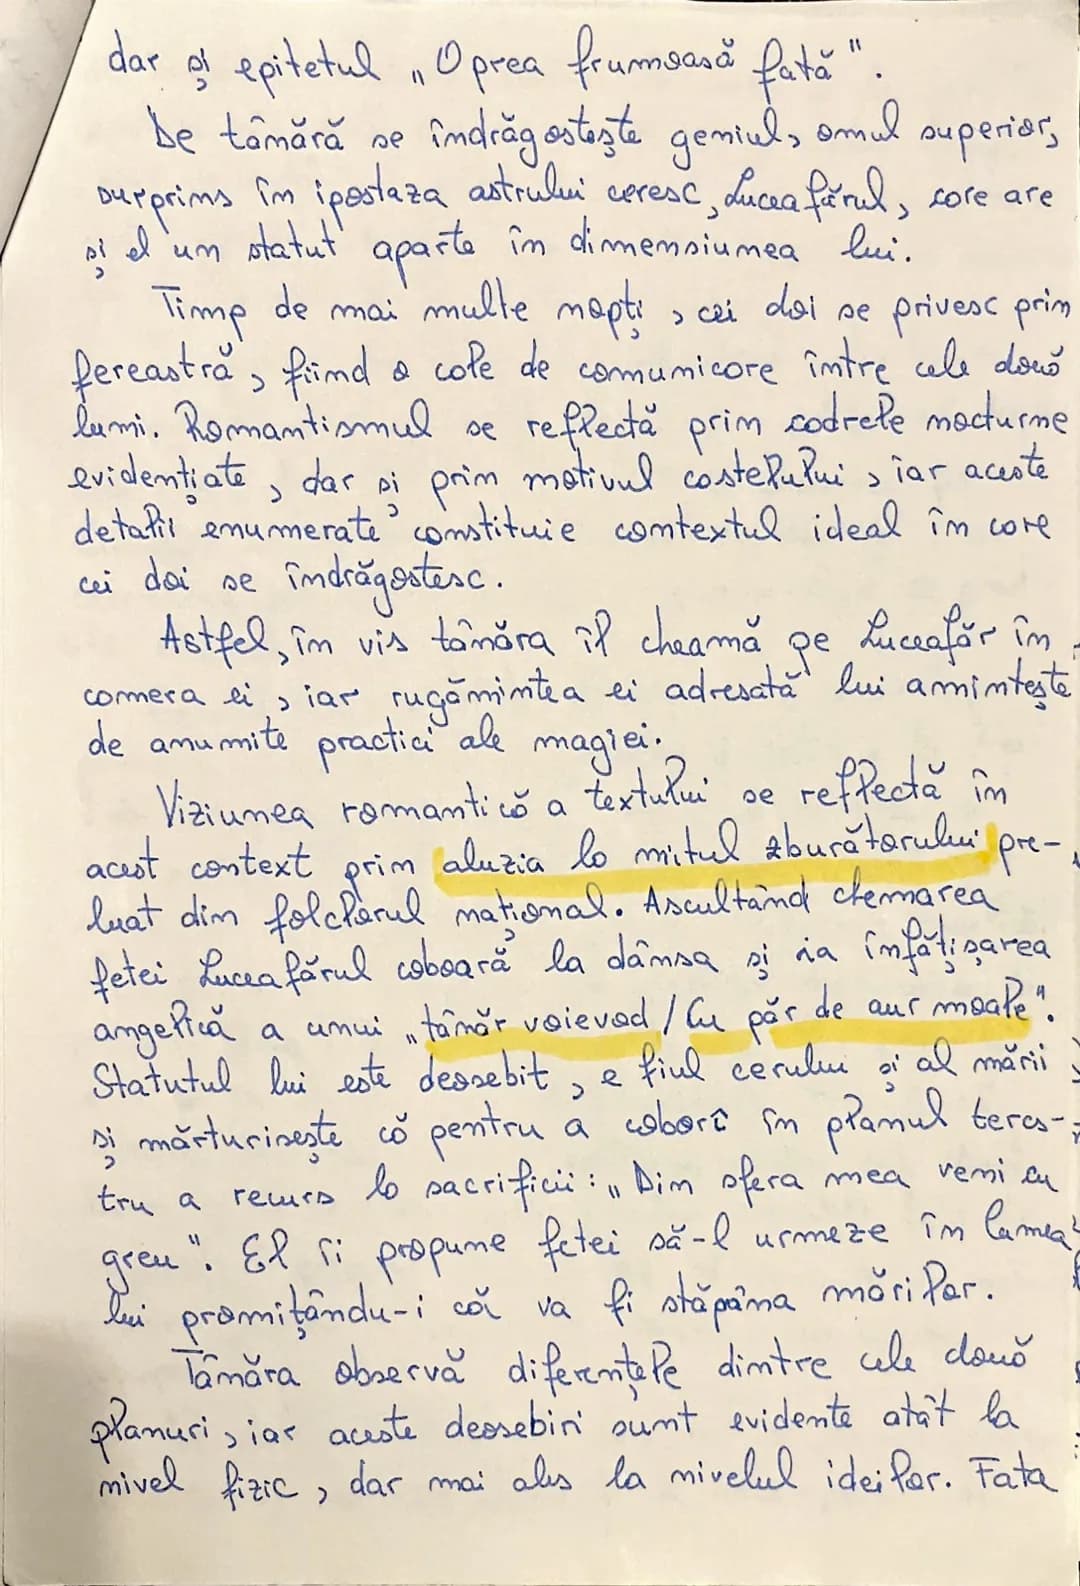 dar și epitetul „Oprea frumoasă fată".
De tânără se îndrăgostește geniul, omul superior,
surprins în ipostaza astrului ceresc, Luceafărul, care are
și el un statut aparte în dimensiunea lui.
Timp de mai multe nopți, cei doi se privesc prin
fereastră, fiind o cale de comunicare între cele două
lumi. Romantismul se reflectă prin cadrele nocturne
evidențiate, dar și prin motivul castelului, iar aceste
detalii enumerate constituie contextul ideal în care
cei doi se îndrăgostesc.
Astfel, în vis tânăra îl cheamă pe Luceafăr în
camera ei, iar rugămintea ei adresată lui amintește
de anumite practici ale magiei.
Viziunea romantică a textului se reflectă în
acest context prin aluzia la mitul zburătorului pre-
luat din folclorul național. Ascultând chemarea
fetei Luceafărul coboară la dânsa și ia înfățișarea
angelică a unui „tânăr voievod / Cu păr de aur moale".
Statutul lui este deosebit, e fiul cerului și al mării
și mărturisește că pentru a coborî în planul teres-
tru a recurs la sacrificii: „Din sfera mea veni cu
greu". El îi propune fetei să-l urmeze în lumea
lui promițându-i că va fi stăpâna mărilor.
Tânăra observă diferențele dintre cele două
planuri, iar aceste deosebiri sunt evidente atât la
nivel fizic, dar mai ales la nivelul ideilor. Fata